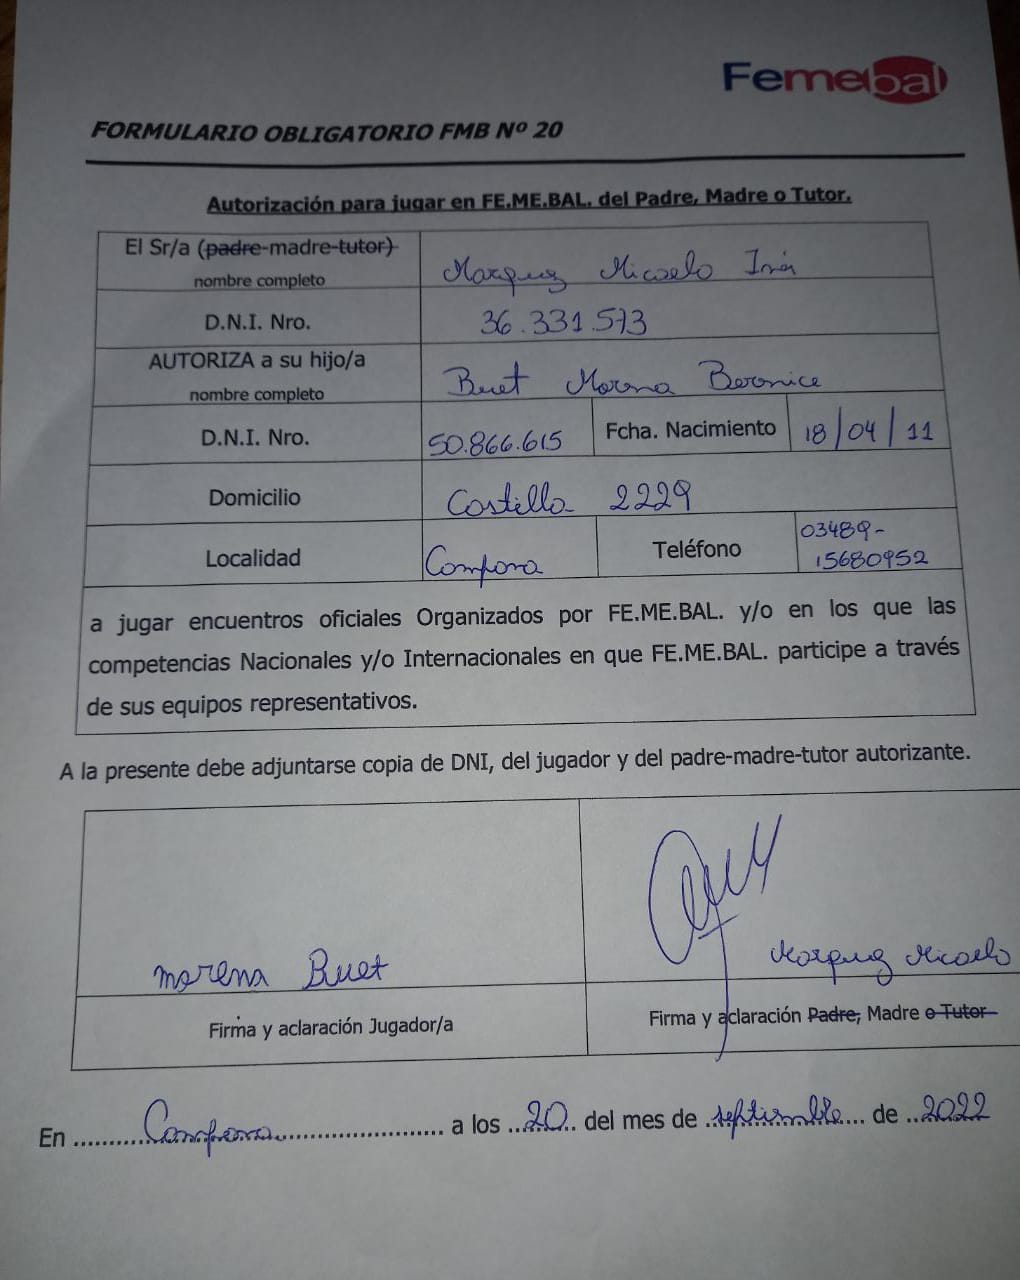 Femebal
FORMULARIO OBLIGATORIO FMB Nº 20
Autorización para jugar en FE.ME.BAL. del Padre, Madre o Tutor.
El Sr/a (padre-madre-tutor)
nombre completo
Marquez Micaela Inés
D.N.I. Nro.
36.331.573
AUTORIZA a su hijo/a
nombre completo
Buet Morena Berenice
D.N.I. Nro.
50.866.615
Fcha. Nacimiento
18/04/11
Domicilio
Castilla 2229
Localidad
Campana
Teléfono
03489-
15680952
a jugar encuentros oficiales Organizados por FE.ME.BAL. y/o en los que las
competencias Nacionales y/o Internacionales en que FE.ME.BAL. participe a través
de sus equipos representativos.
A la presente debe adjuntarse copia de DNI, del jugador y del padre-madre-tutor autorizante.
morena Buet
Marquez Micaela
Firma y aclaración Jugador/a
Firma y aclaración Padre, Madre o Tutor
En Campana a los 20 del mes de septiembre de 2022